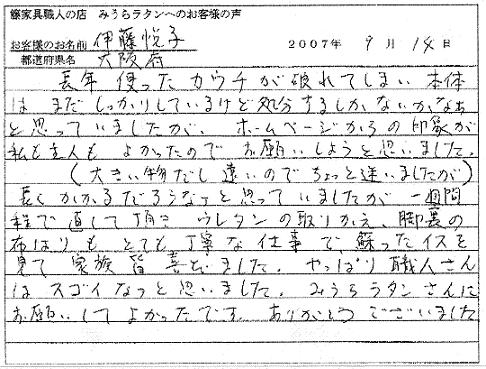 籐家具職人の店 みうらラタンへのお客様の声
お客様のお名前 伊藤悦子 2007年 9月 14日
都道府県名 大阪府
長年 使ったカウチが破れてしまい 本体
は まだしっかりしているけど処分するしかないかなぁ
と思っていましたが、ホームページからの印象が
私も主人も よかったので お願いしようと思いました。
(大きい物だし 遠いので ちょっと迷いましたが)
長く かかるだろうな、と思っていましたが 一週間
程で 直して頂き ウレタンの取りかえ、脚裏の
布はりも とても 丁寧な仕事で 蘇ったイスを
見て 家族 皆 喜びました。 やっぱり 職人さん
は スゴイなっと思いました。 みうらラタンさんに
お願いして よかったです。 ありがとうございました